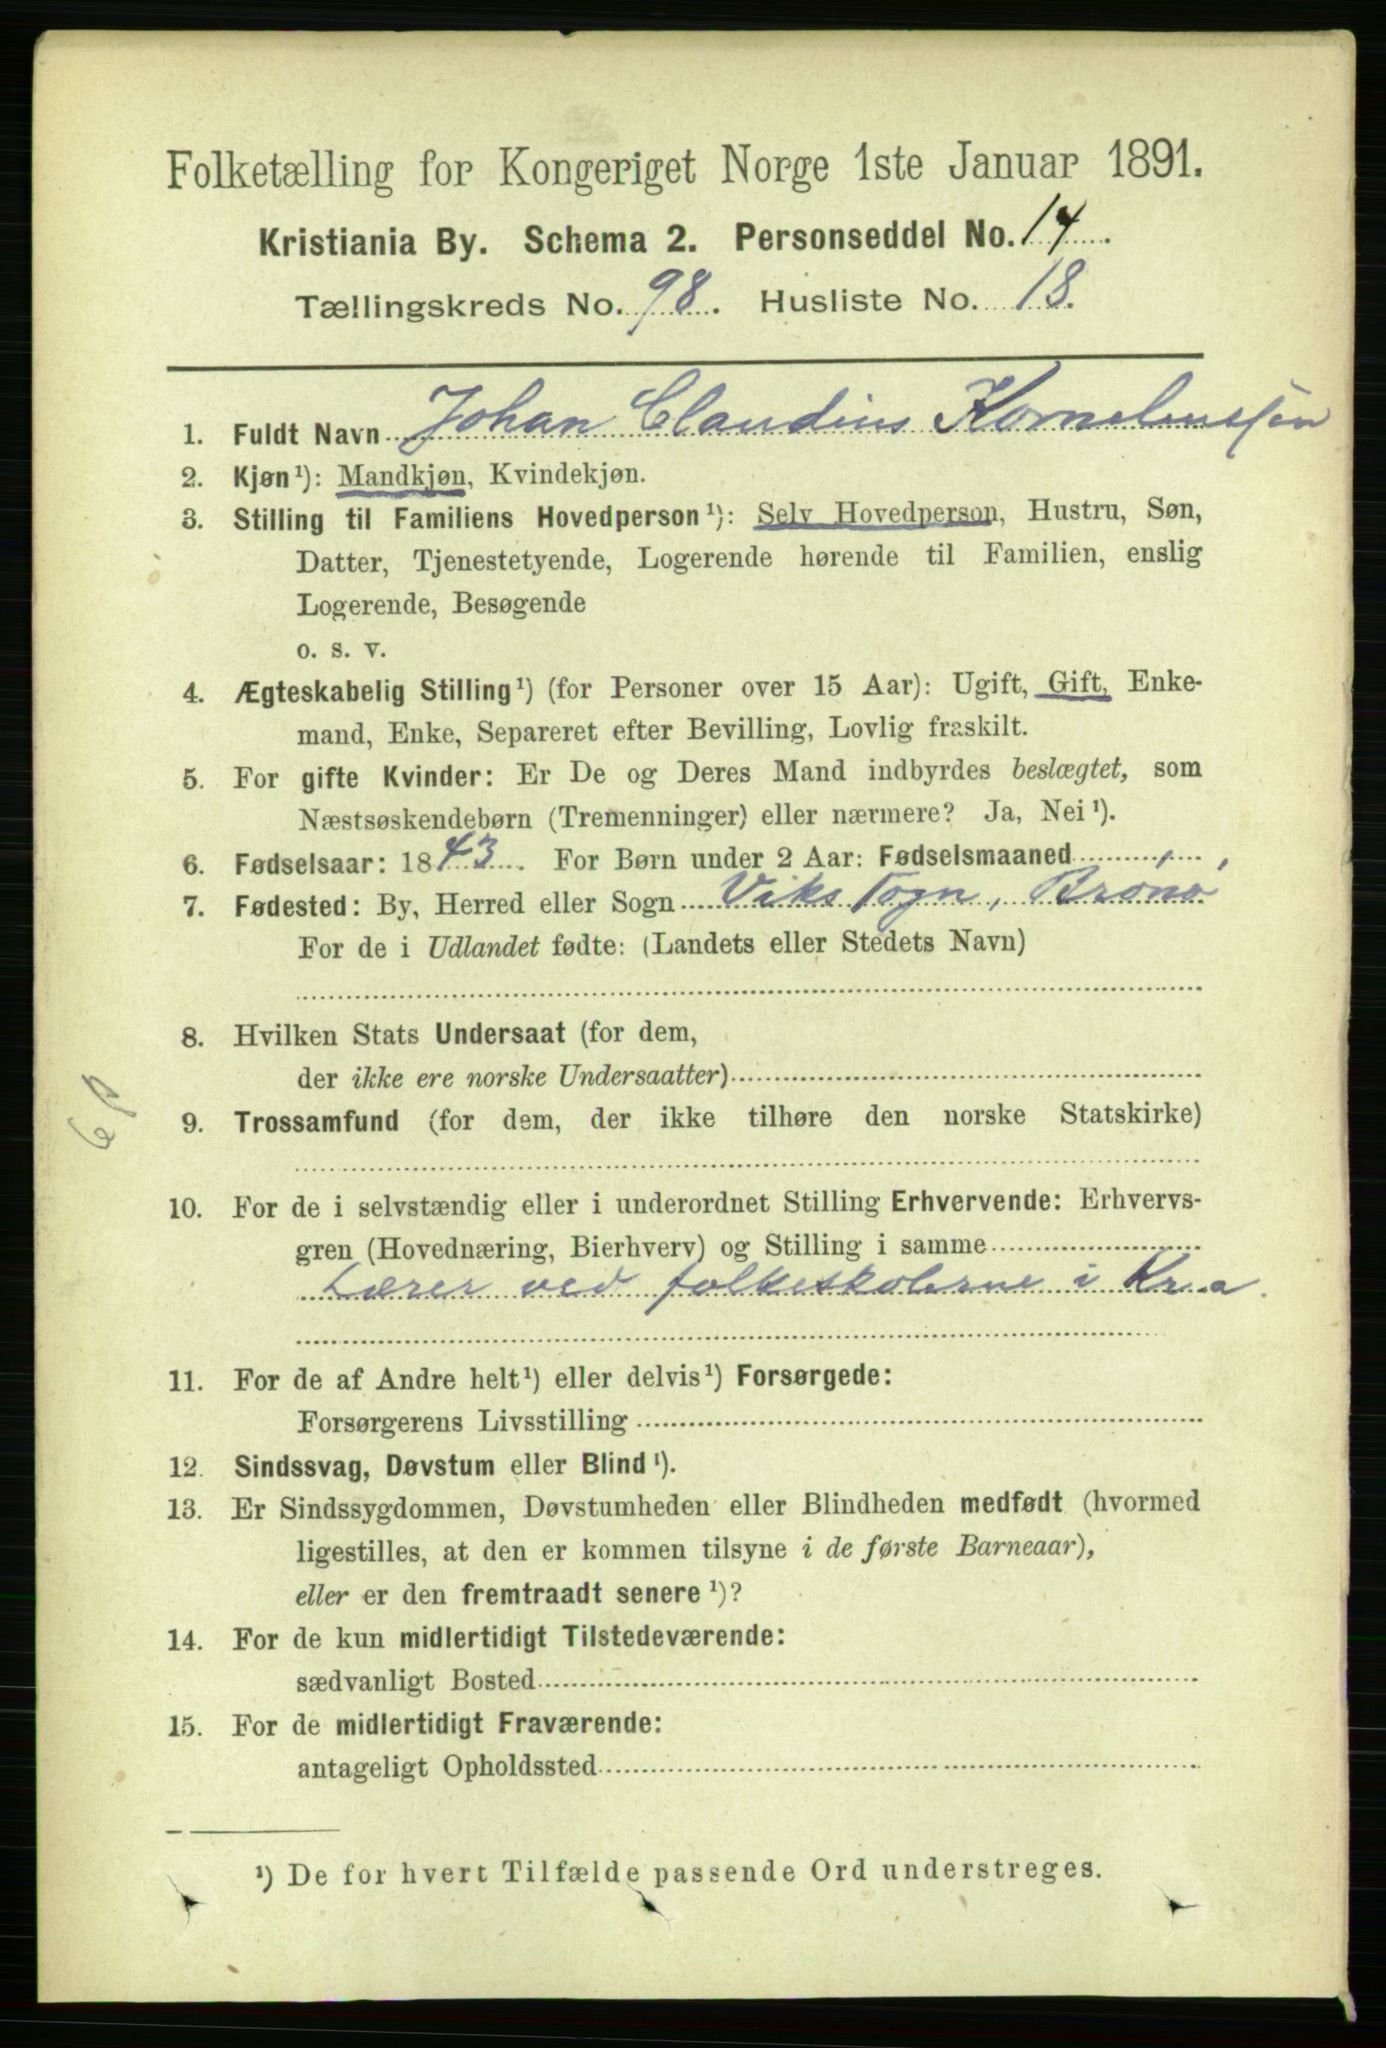 Folketælling for Kongeriget Norge 1ste Januar 1891.
Kristiania By. Schema 2. Personseddel No. 14
Tællingskreds No. 98. Husliste No. 18.
1. Fuldt Navn Johan Claudius Kornelenssen
2. Kjøn¹): Mandkjøn, Kvindekjøn.
3. Stilling til Familiens Hovedperson¹): Selv Hovedperson, Hustru, Søn,
Datter, Tjenestetyende, Logerende hørende til Familien, enslig
Logerende, Besøgende
o. s. v.
4. Ægteskabelig Stilling¹) (for Personer over 15 Aar): Ugift, Gift, Enke-
mand, Enke, Separeret efter Bevilling, Lovlig fraskilt.
5. For gifte Kvinder: Er De og Deres Mand indbyrdes beslægtet, som
Næstsøskendebørn (Tremenninger) eller nærmere? Ja, Nei¹).
6. Fødselsaar: 1843. For Børn under 2 Aar: Fødselsmaaned
7. Fødested: By, Herred eller Sogn Viks Sogn, Brønø
For de i Udlandet fødte: (Landets eller Stedets Navn)
8. Hvilken Stats Undersaat (for dem,
der ikke ere norske Undersaatter)
9. Trossamfund (for dem, der ikke tilhøre den norske Statskirke)
10. For de i selvstændig eller i underordnet Stilling Erhvervende: Erhvervs-
gren (Hovednæring, Bierhverv) og Stilling i samme
Lærer ved folkeskolerne i Kr.a.
11. For de af Andre helt¹) eller delvis¹) Forsørgede:
Forsørgerens Livsstilling
12. Sindssvag, Døvstum eller Blind¹).
13. Er Sindssygdommen, Døvstumheden eller Blindheden medfødt (hvormed
ligestilles, at den er kommen tilsyne i de første Barneaar),
eller er den fremtraadt senere¹)?
14. For de kun midlertidigt Tilstedeværende:
sædvanligt Bosted
15. For de midlertidigt Fraværende:
antageligt Opholdssted
¹) De for hvert Tilfælde passende Ord understreges.